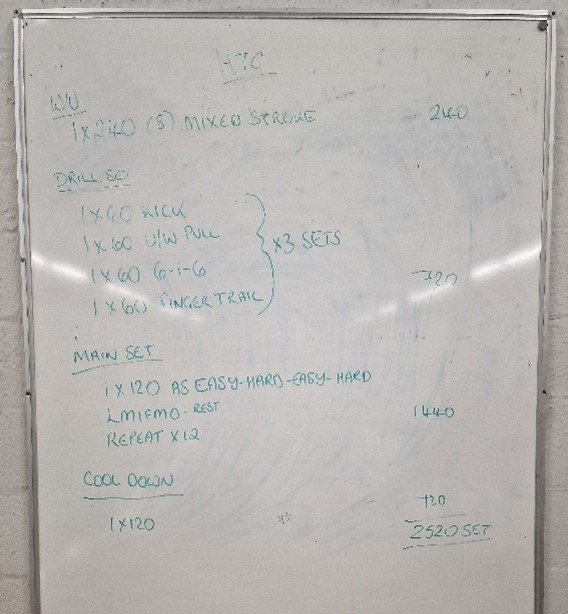 HTC
W/U
1x240 (S) MIXED STROKE 240
DRILL SET
1x60 KICK
1x60 U/W PULL
1x60 6-1-6
1x60 FINGER TRAIL
x3 SETS
720
MAIN SET
1x120 AS EASY-HARD-EASY-HARD
REST
REPEAT x12
1440
COOL DOWN
1x120 120
2520 SET